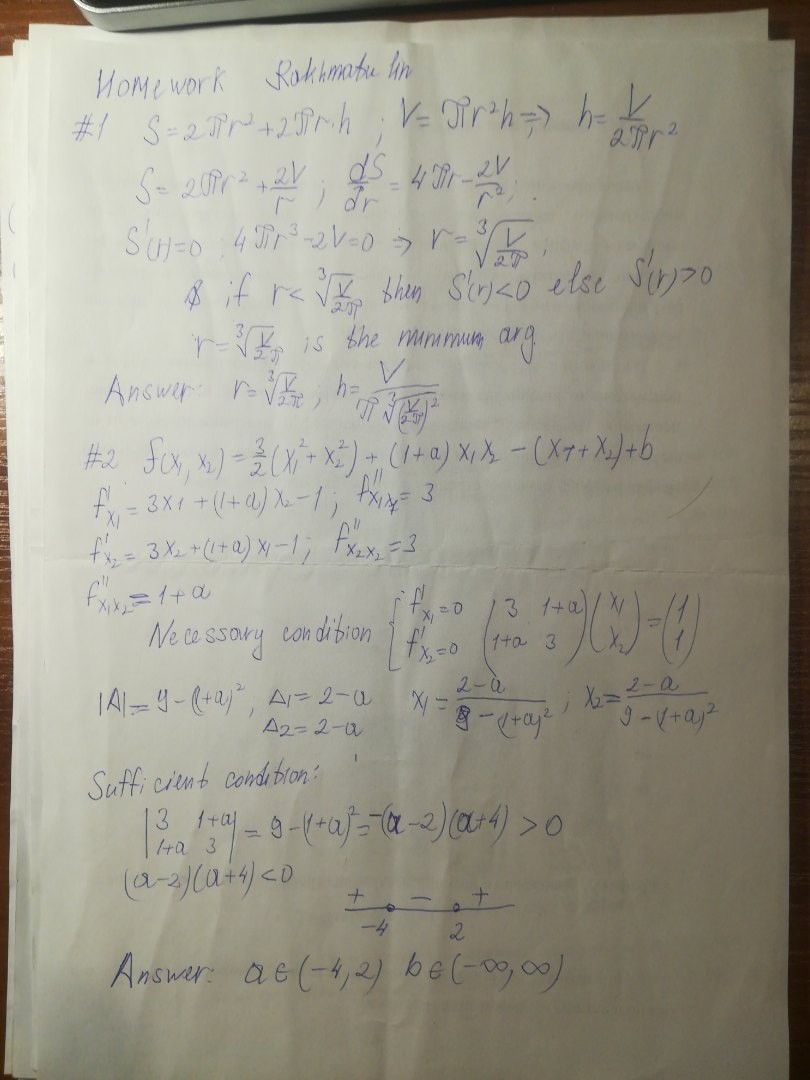 Homework Rakhmatulin
#1 S = 2πr² + 2πr·h ; V = πr²h ⇒ h = V/(2πr²)
S = 2πr² + 2V/r ; dS/dr = 4πr − 2V/r² ;
S'(r)=0 4πr³ − 2V = 0 ⇒ r = ∛(V/(2π)) ;
if r < ∛(V/(2π)) then S'(r)<0 else S'(r)>0
r = ∛(V/(2π)) is the minimum arg
Answer: r = ∛(V/(2π)) ; h = V/(π ∛((V/(2π))²))
#2 f(x₁, x₂) = 3/2 (x₁² + x₂²) + (1+a) x₁x₂ − (x₁ + x₂) + b
f'x₁ = 3x₁ + (1+a)x₂ − 1 ; f''x₁x₁ = 3
f'x₂ = 3x₂ + (1+a)x₁ − 1 ; f''x₂x₂ = 3
f''x₁x₂ = 1+a
Necessary condition { f'x₁=0 f'x₂=0 (3 1+a 1+a 3) (x₁ x₂) = (1 1)
|A| = 9 − (1+a)², Δ₁ = 2−a x₁ = (2−a)/(9 − (1+a)²) ; x₂ = (2−a)/(9 − (1+a)²)
Δ₂ = 2−a
Sufficient condition:
|3 1+a 1+a 3| = 9 − (1+a)² = −(a−2)(a+4) > 0
(a−2)(a+4) < 0
+ − +
−4 2
Answer: a ∈ (−4, 2) b ∈ (−∞, ∞)